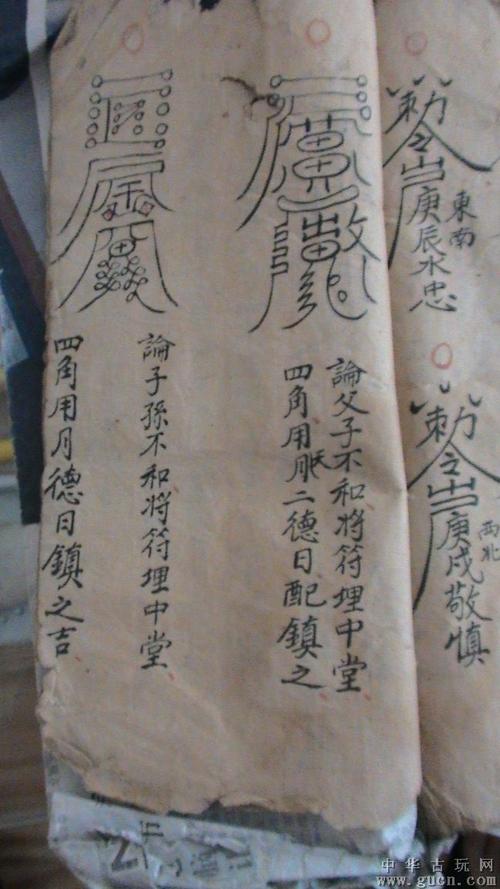 勅令
庚辰水忠
東南
勅令
庚戌敬慎
西北
論父子不和將符埋中堂
四角用月天二德日配鎮之
論子孫不和將符埋中堂
四角用月德日鎮之吉
中华古玩网
www.gucn.com